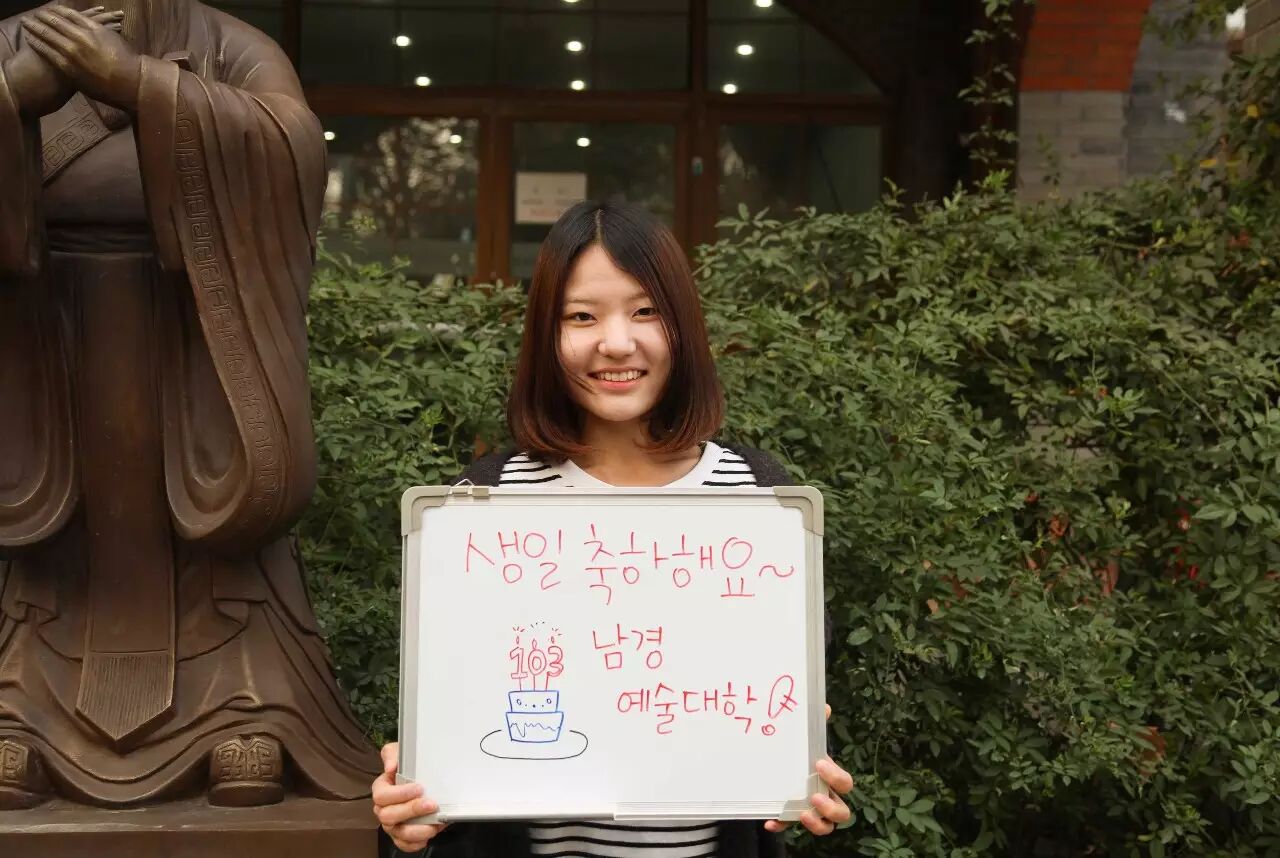 생일 축하해요~
103
남경
예술대학!